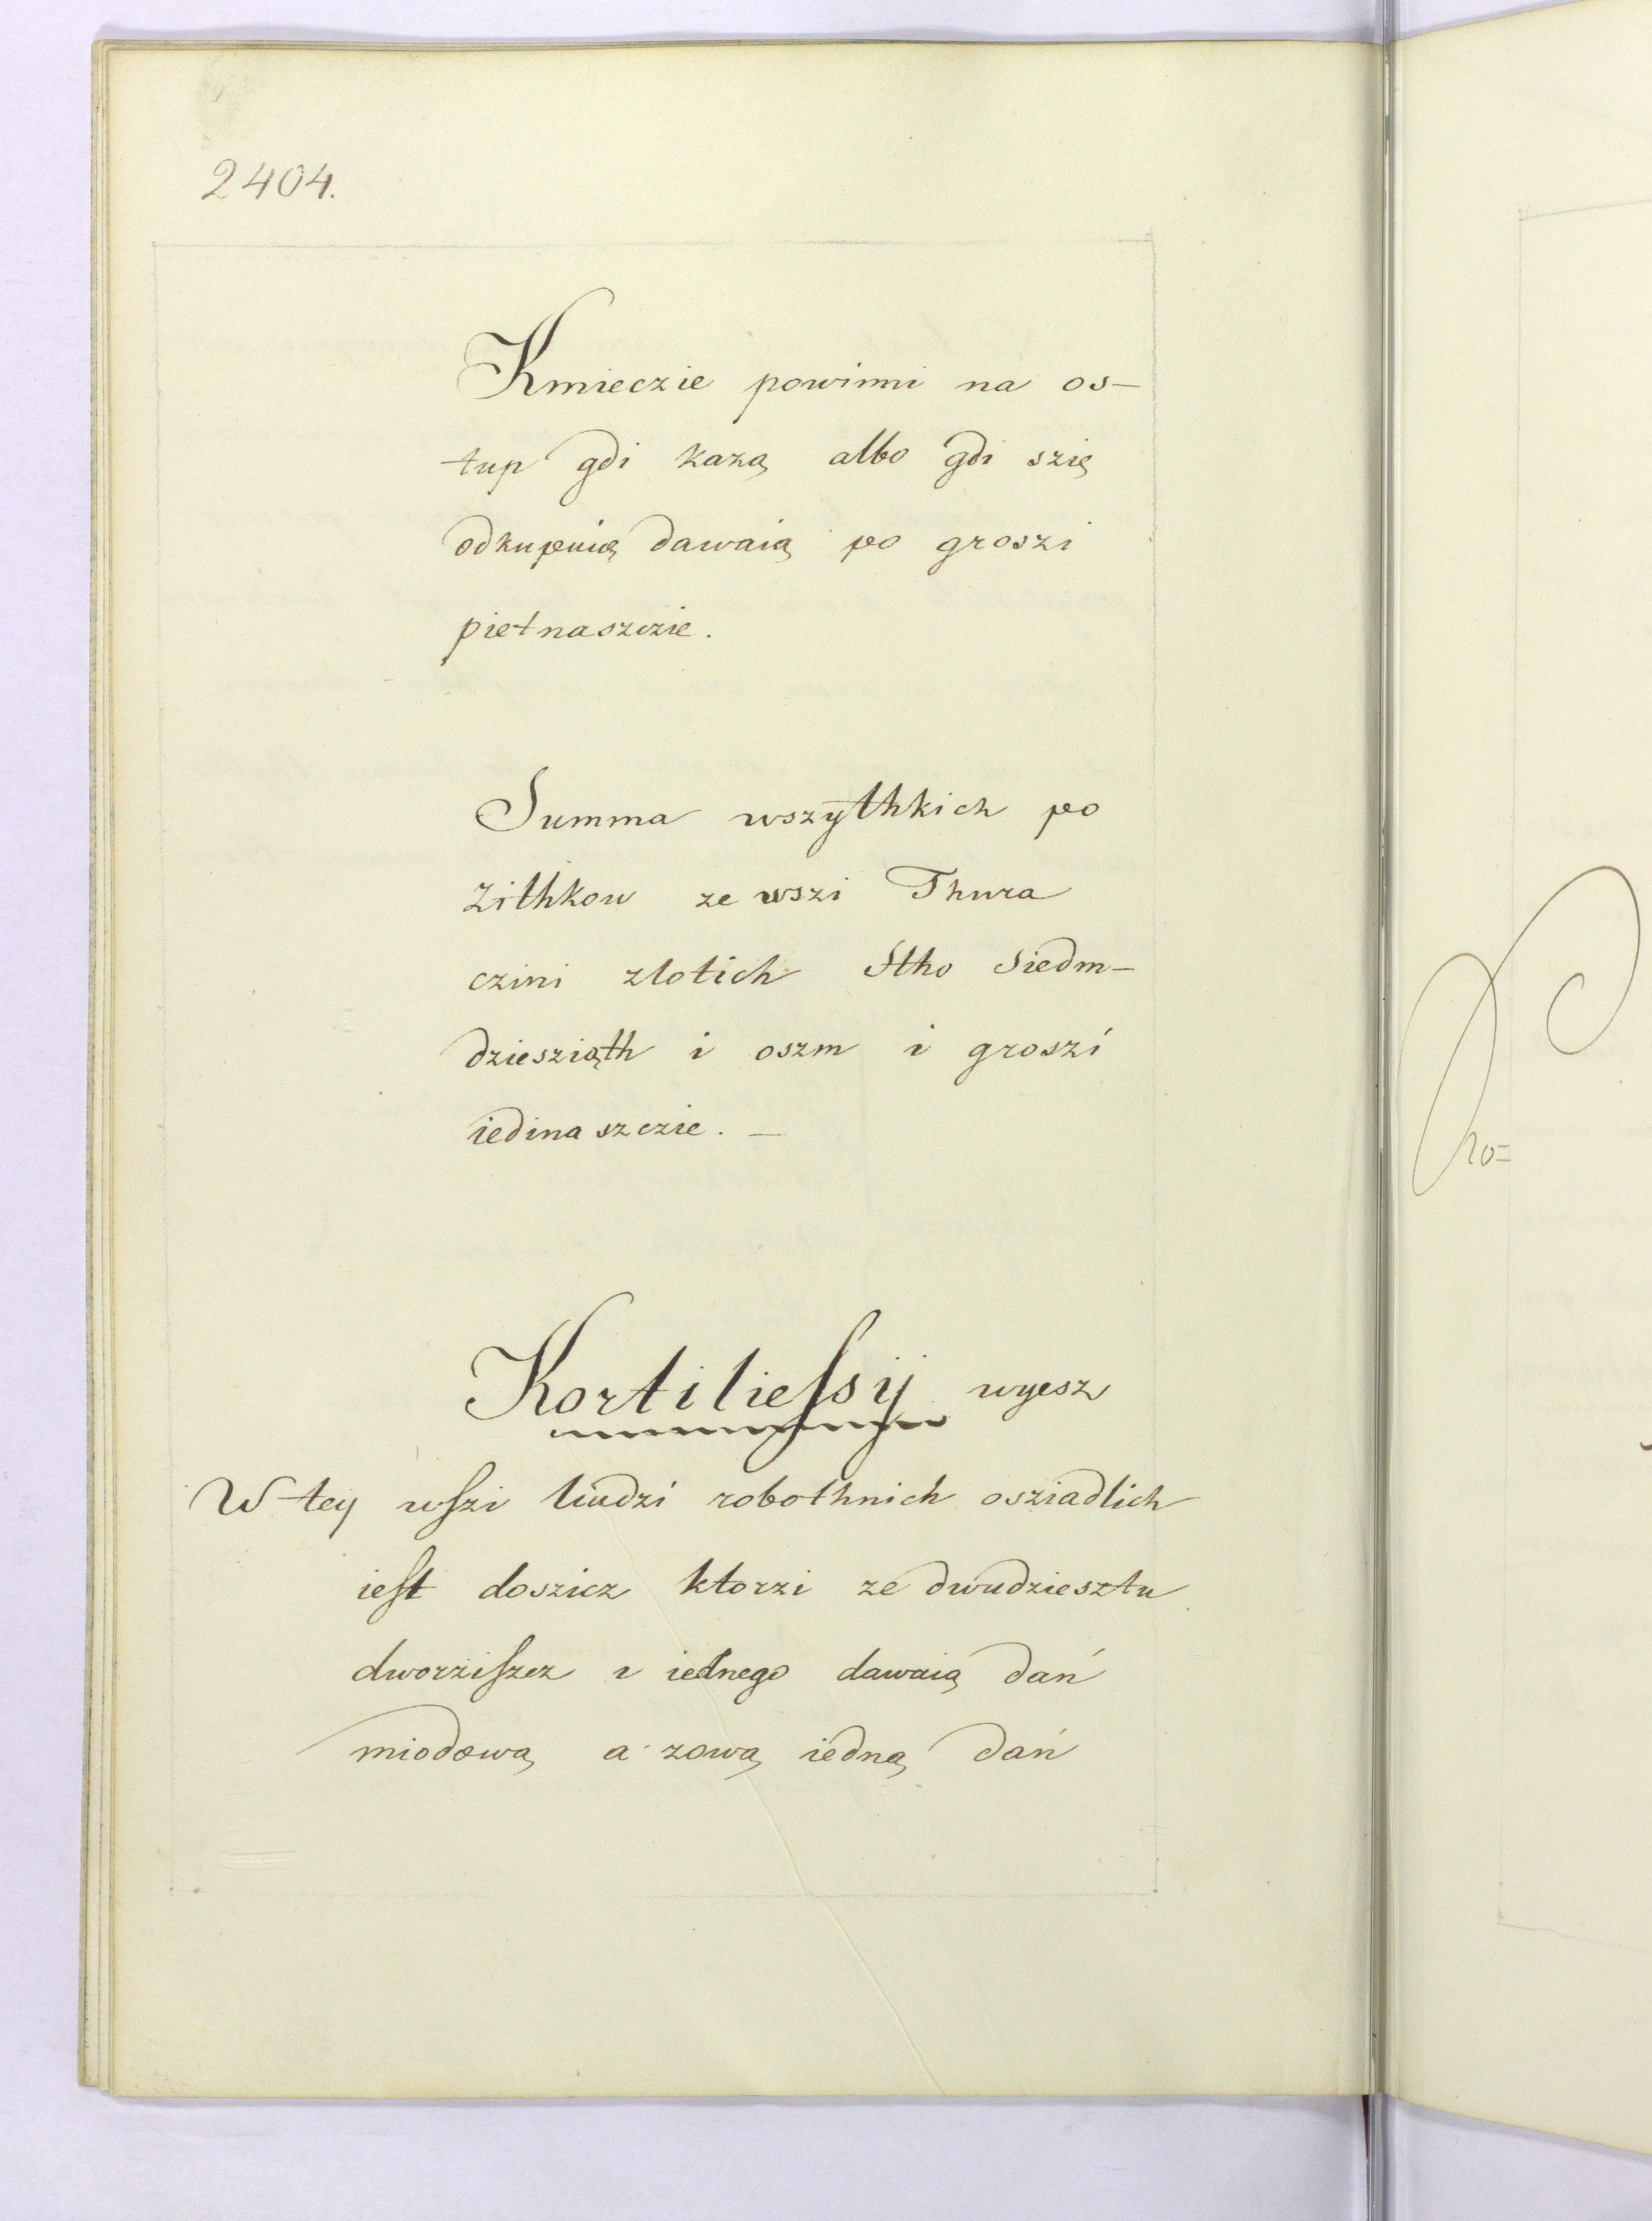 2404.
Kmieczie powinni na os-
tup gdi każą albo gdi szię
odkupuią dawaią po groszi
pietnaszczie.
Summa wszythkich po
zithkow ze wszi Thura
czini zlotich Stho Siedm-
dziesziąth i oszm i groszi
iedinaszczie. —
Kortilieſsÿ wyesz
W tey wſzi liudzi robothnich osziadlich
ieſt doszicz ktorzi ze dwudziesztu
dworziſzcz i iednego dawaią dań
miodową a zową iedną dań
ro=